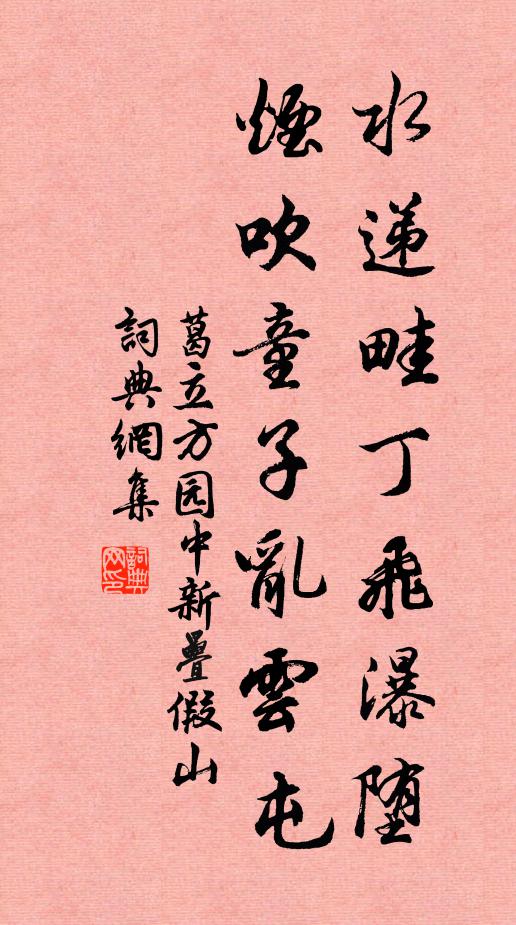 水递畦丁飛瀑堕
煙吹童子亂雲屯
葛立方园中新疊假山
詞典網集
詞典网印